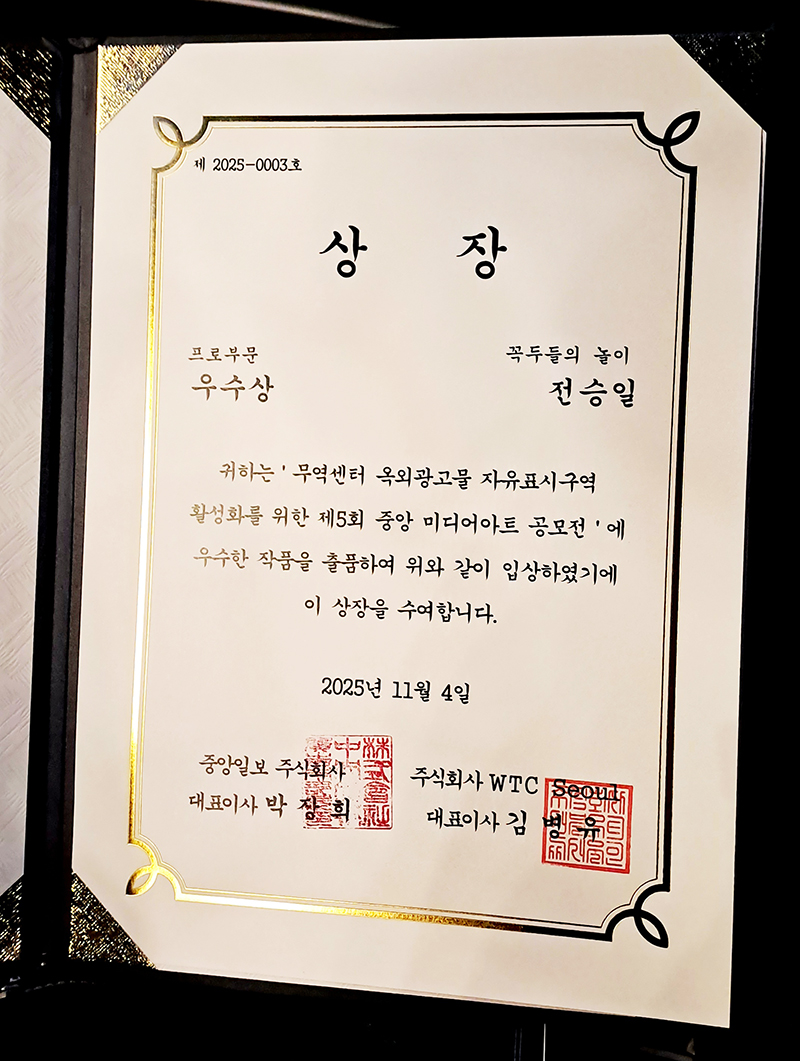 제 2025-0003호
상 장
프로부문 꼭두들의 놀이
우수상 전승일
귀하는 ' 무역센터 옥외광고물 자유표시구역
활성화를 위한 제5회 중앙 미디어아트 공모전 ' 에
우수한 작품을 출품하여 위와 같이 입상하였기에
이 상장을 수여합니다.
2025년 11월 4일
중앙일보 주식회사
대표이사 박 장 희
주식회사 WTC Seoul
대표이사 김 병 유